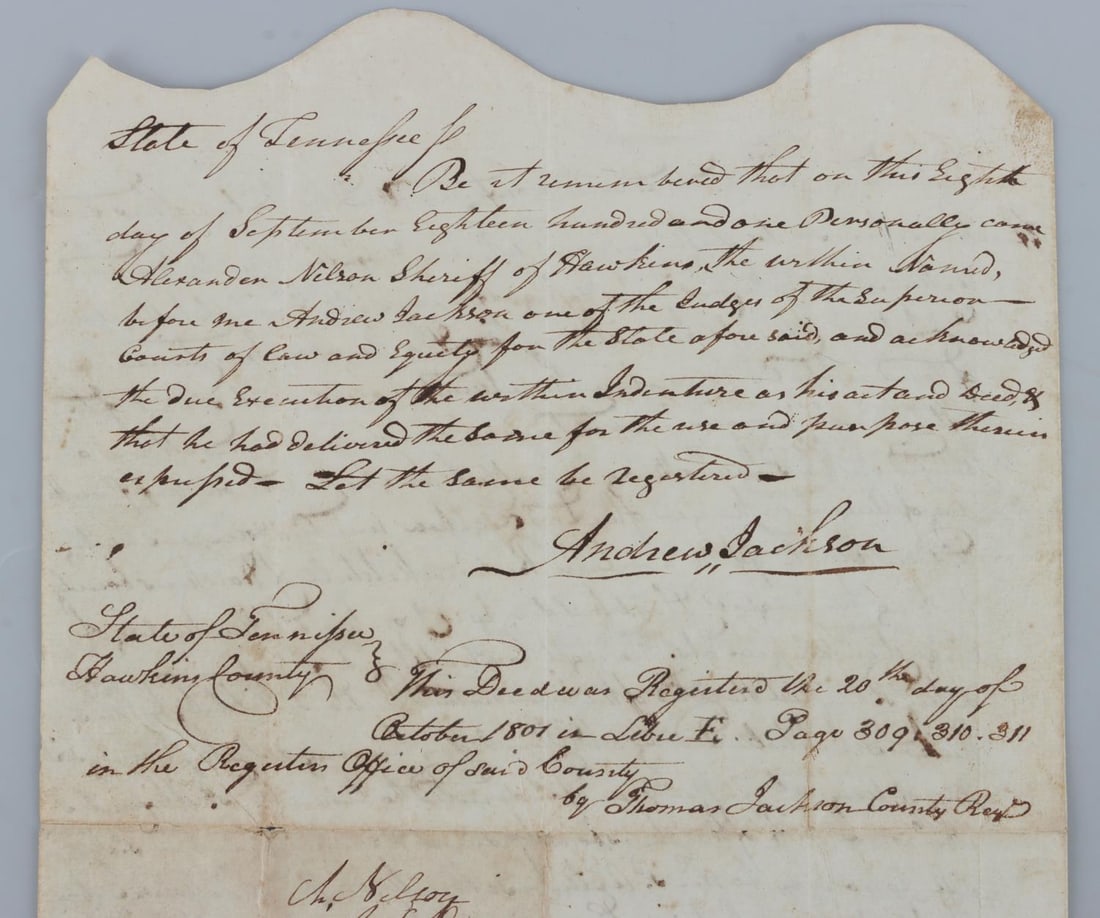 State of Tennessee ss
Be it remembered that on this Eighth
day of September Eighteen hundred and one Personally came
Alexander Nilson Sheriff of Hawkins, the within Named,
before me Andrew Jackson one of the Judges of the Superior
Courts of law and Equity for the State afore said, and acknowledged
the due Execution of the within Indenture as his act and Deed, &
that he had delivered the same for the use and purpose therein
expressed — Let the same be registered —
Andrew Jackson
State of Tennissee
Hawkins County } This Deed was Registerd the 20th day of
October 1801 in Libre E. Page 309. 310. 311
in the Registers Office of said County
by Thomas Jackson County Regr
Nelson